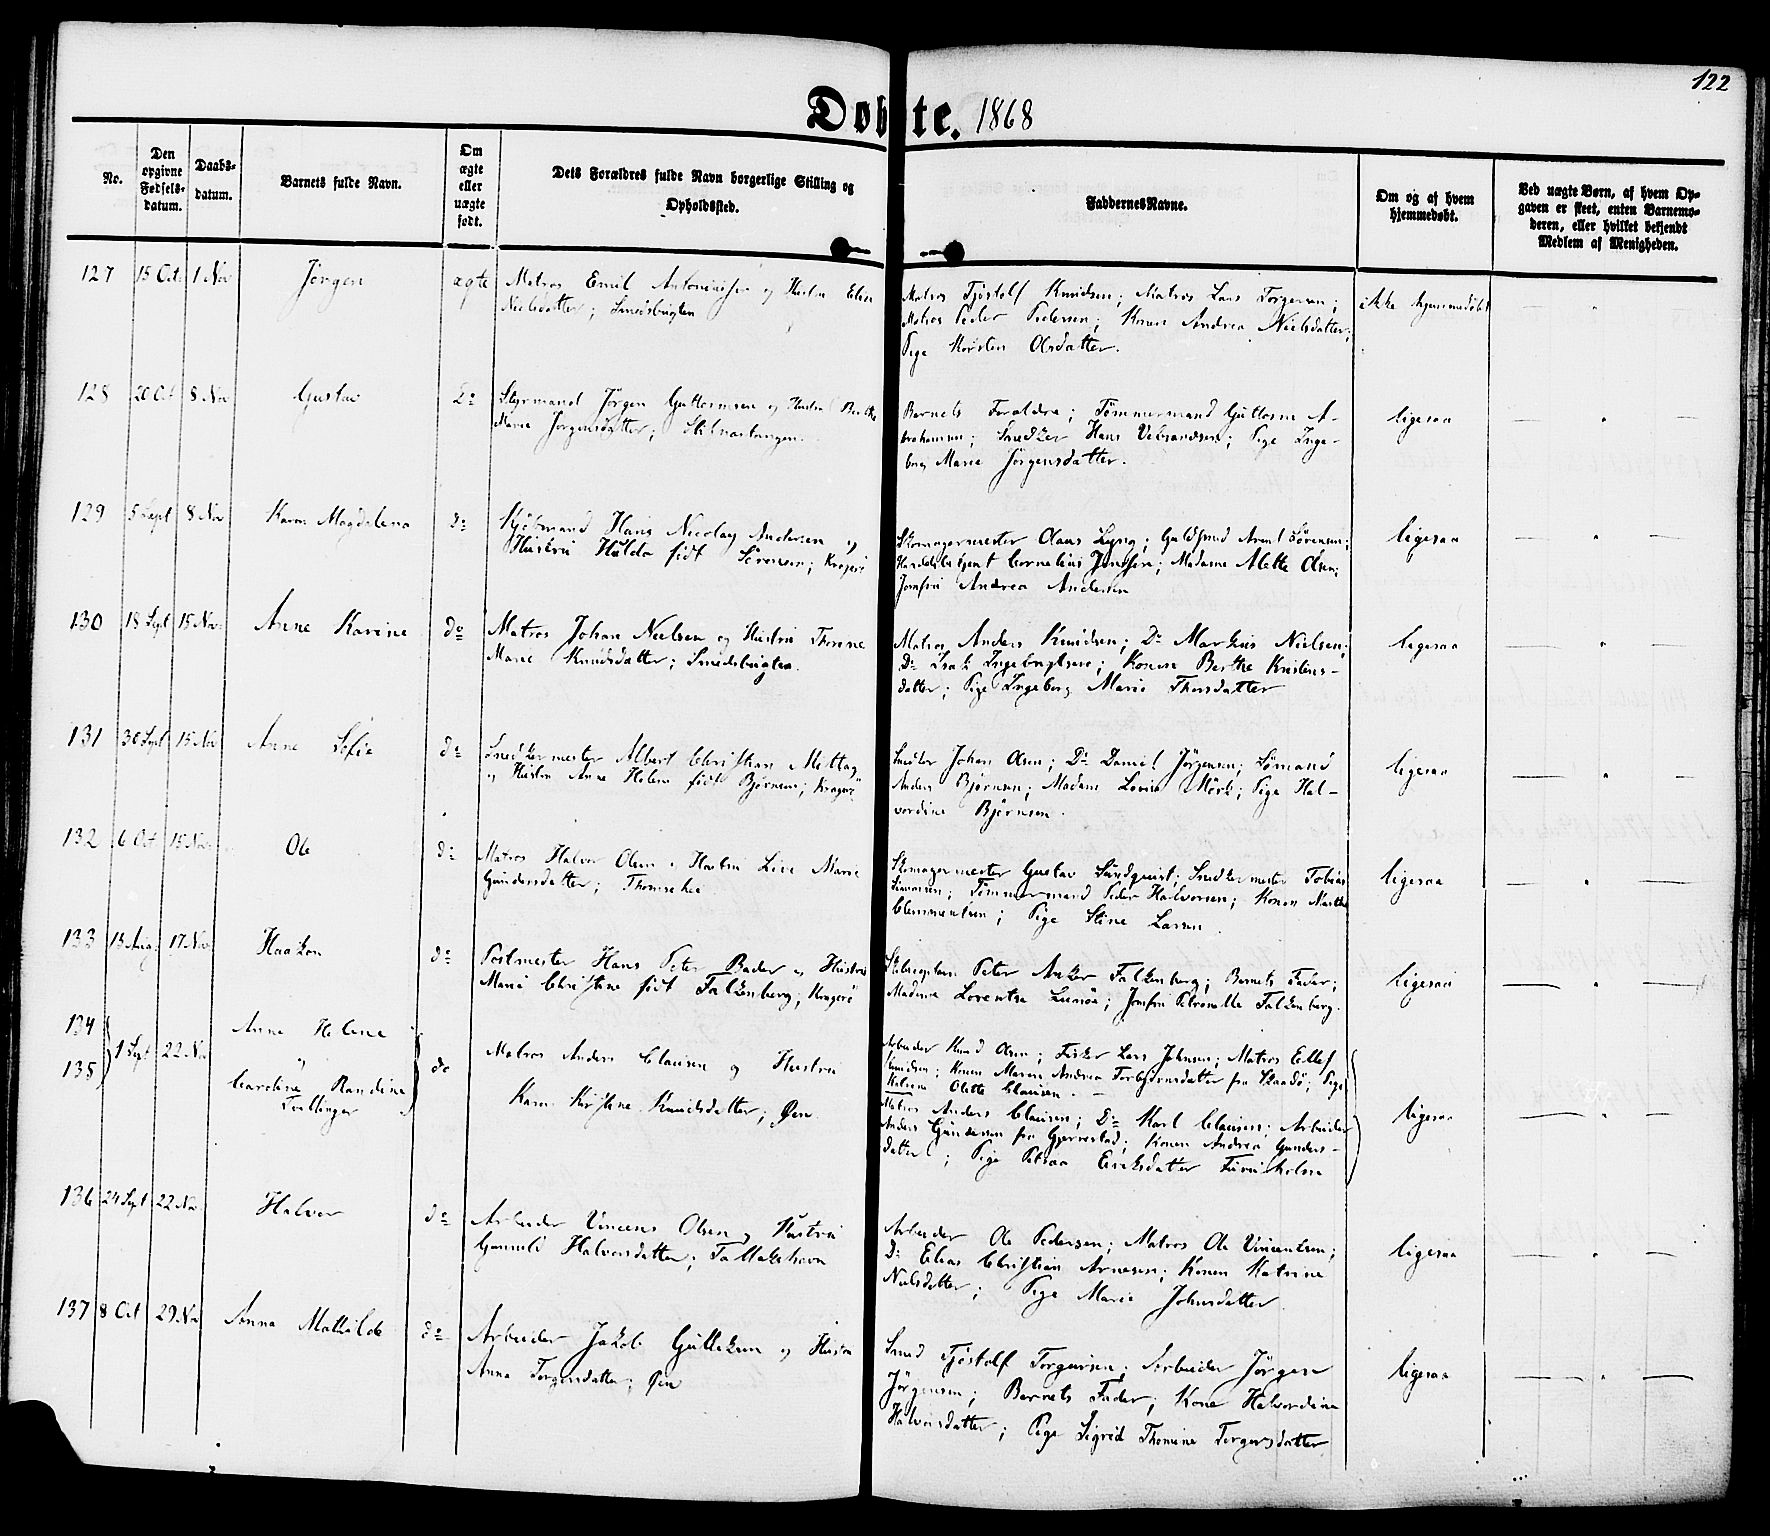 122
Døbte. 1868
No.
Den opgivne Fødsels-datum.
Daabs-datum.
Barnets fulde Navn.
Om ægte eller uægte født.
Dets Forældres fulde Navn borgerlige Stilling og Opholdssted.
Faddernes Navne.
Om og af hvem hjemmedøbt.
Ved uægte Børn, af hvem Op-
gaven er skeet, enten Barnemo-
deren, eller hvilket bekjendt
Medlem af Menigheden.
127 15 Oct 1 Nov Jørgen ægte
Matros Emil Antoniusen og Hustru Elen
Nielsdatter; Smedsbugten
Matros Tjøstolf Knudsen; Matros Lars Torgersen;
Matros Peder Pedersen; Konen Andrea Nielsdatter;
Pige Kirsten Olsdatter.
ikke hjemmedøbt
128 20 Oct 8 Nov Gustav Do
Styrmand Jørgen Guttormsen og Hustru Berthe
Marie Jørgensdatter;
Barnets Forældre; Tømmermand Guttorm A-
brahamsen; Snedker Hans Vebrandsen; Pige Inge-
borg Marie Jørgensdatter.
ligesaa
129 5 Sept 8 Nov Karen Magdalena Do
Kjøbmand Hans Nicolay Andersen og
Hustru Hulda født Sørensen; Kragerø
Skomagermester Claus Lyng; Guldsmed Arent Sørensen;
Handelsbetjent Cornelius Jonsen; Madame Mette Olsen;
Jomfru Andrea Andersen
ligesaa
130 18 Sept 15 Nov Anne Karine do
Matros Johan Nielsen og Hustru Thorine
Marie Knudsdatter; Smedsbugten.
Matros Anders Knudsen; Do Markus Nielsen;
Do Isak Ingebrigtsen; Konen Berthe Kristens-
datter; Pige Ingeborg Marie Thorsdatter
ligesaa
131 30 Sept 15 Nov Anne Sofie do
Snedkermester Albert Christian Mittag
og Hustru Anne Helene født Bjørnsen; Kragerø
Snedker Johan Olsen; Do Daniel Jørgensen; Sømand
Anders Bjørnsen; Madam Lovise Mørk; Pige Hal-
vordine Bjørnsen.
ligesaa
132 6 Oct 15 Nov Ole do
Matros Halvor Olsen og Hustru Live Marie
Gundersdatter;
Skomagermester Gustav Sundquist; Snedkermester Tobias
Simonsen; Tømmermand Peder Halvorsen; Konen Marthe
Clemmentsen; Pige Stine Larsen.
ligesaa
133 13 Aug 17 Nov Haakon do
Postmester Hans Peter Bader og Hustru
Marie Christine født Falkenberg; Kragerø
Peter Anker Falkenberg; Barnets Fader;
Madame Lorentse Lunøe; Jomfru Petronelle Falkenberg.
ligesaa
134
135
1 Sept 22 Nov
Anne Helene
og
Caroline Randine
Tvillinger
do
Matros Anders Clausen og Hustru
Karen Kirstine Knudsdatter; Øen
Arbeider Knud Olsen; Fisker Lars Johnsen; Matros Ellef
Knudsen; Konen Maren Andrea Torbjørnsdatter fra Skaadø; Pige
Helene Olette Clausen. -
Matros Anders Clausen; Do Karl Clausen; Arbeider
Anders Gundersen fra Gjerrestad; Konen Andrea Gunders-
datter; Pige Petraa Eriksdatter Furuholmen
ligesaa
136 24 Sept 22 Nov Halvor do
Arbeider Vincens Olsen og Hustru
Gunnild Halvorsdatter; Tallakshavn
Arbeider Ole Pedersen; Matros Ole Vincentsen;
Do Elias Christian Arnesen; Konen Katrine
Nielsdatter; Pige Marie Johnsdatter
ligesaa
137 8 Oct 29 Nov Anna Mathilde do
Arbeider Jakob Gulliksen og Hustru
Anna Torgersdatter; Øen
Smed Tjøstolf Torgersen; Arbeider Jørgen
Jørgensen; Barnets Fader; Kone Halvordine
Halvorsdatter; Pige Sigrid Thomine Torgersdatter
ligesaa